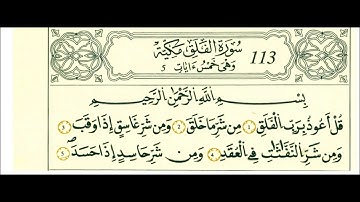 سُورَةُ الْفَلَقِ مَكِّيَّة
113
وَهِيَ خَمْسُ ءَايَات
بِسْمِ اللَّهِ الرَّحْمَٰنِ الرَّحِيمِ
قُلْ أَعُوذُ بِرَبِّ الْفَلَقِ ١ مِن شَرِّ مَا خَلَقَ ٢ وَمِن شَرِّ غَاسِقٍ إِذَا وَقَبَ ٣
وَمِن شَرِّ النَّفَّٰثَٰتِ فِي الْعُقَدِ ٤ وَمِن شَرِّ حَاسِدٍ إِذَا حَسَدَ ٥